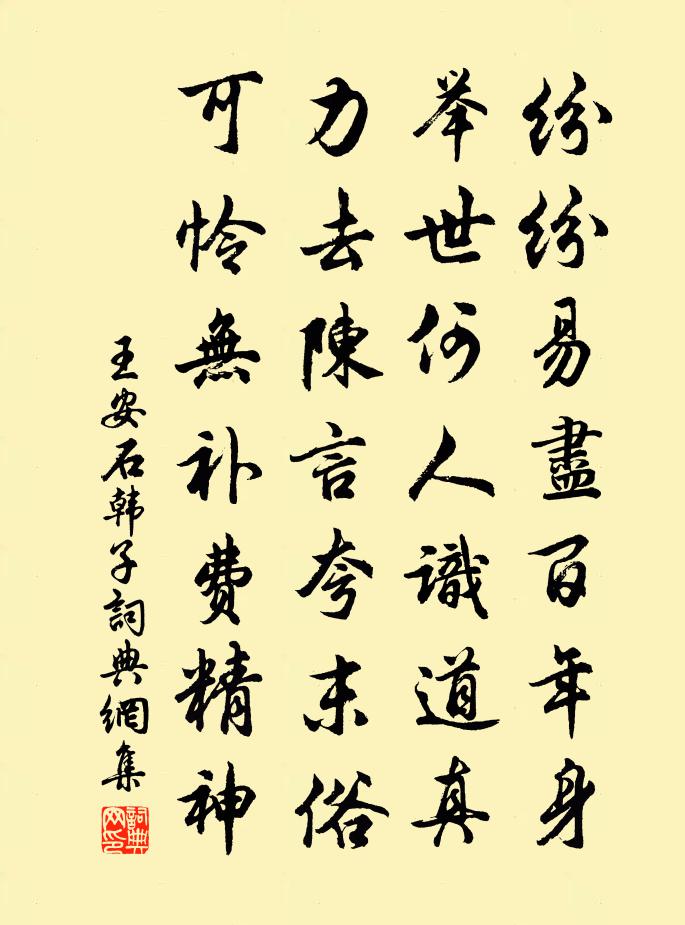 纷纷易盡百年身
举世何人識道真
力去陳言夸末俗
可怜無补费精神
王安石韩子詞典網集
詞典网印